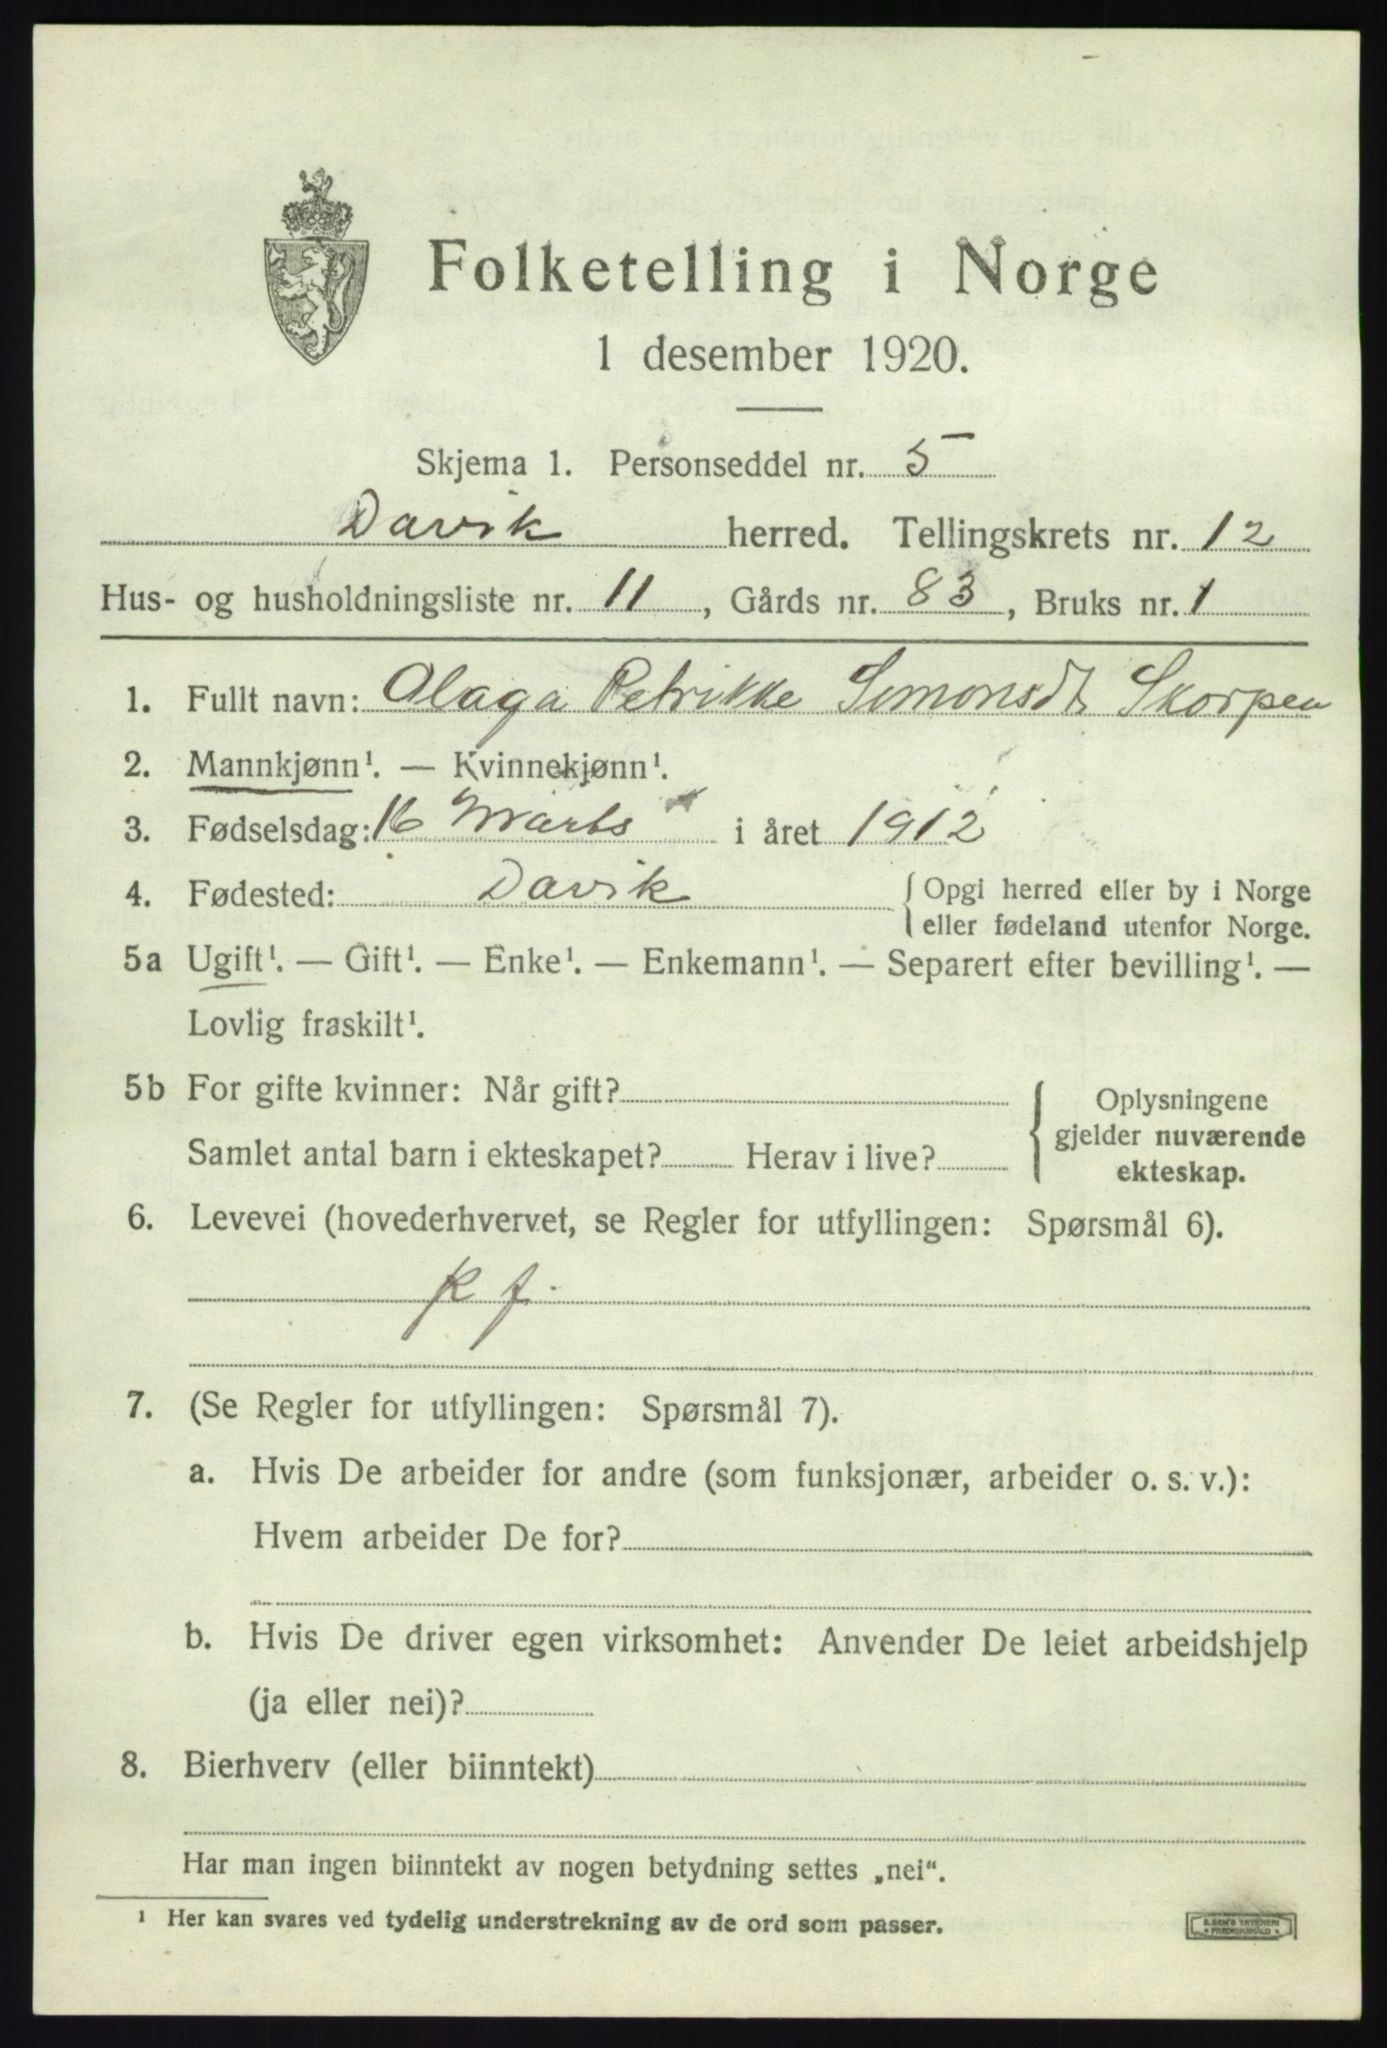 Folketelling i Norge
1 desember 1920.
Skjema 1. Personseddel nr. 5
Davik herred. Tellingskrets nr. 12
Hus- og husholdningsliste nr. 11, Gårds nr. 83, Bruks nr. 1
1. Fullt navn: Olaga Petrikke Simonsdt Skorpen
2. Mannkjønn¹. — Kvinnekjønn¹.
3. Fødselsdag: 16 Marts i året 1912
4. Fødested: Davik { Opgi herred eller by i Norge
eller fødeland utenfor Norge.
5a Ugift¹. — Gift¹. — Enke¹. — Enkemann¹. — Separert efter bevilling¹. —
Lovlig fraskilt¹.
5b For gifte kvinner: Når gift?
Samlet antal barn i ekteskapet? Herav i live?
{ Oplysningene
gjelder nuværende
ekteskap.
6. Levevei (hovederhvervet, se Regler for utfyllingen: Spørsmål 6).
k f.
7. (Se Regler for utfyllingen: Spørsmål 7).
a. Hvis De arbeider for andre (som funksjonær, arbeider o. s. v.):
Hvem arbeider De for?
b. Hvis De driver egen virksomhet: Anvender De leiet arbeidshjelp
(ja eller nei)?
8. Bierhverv (eller biinntekt)
Har man ingen biinntekt av nogen betydning settes „nei“.
¹ Her kan svares ved tydelig understrekning av de ord som passer.
FREDRIKSHALD